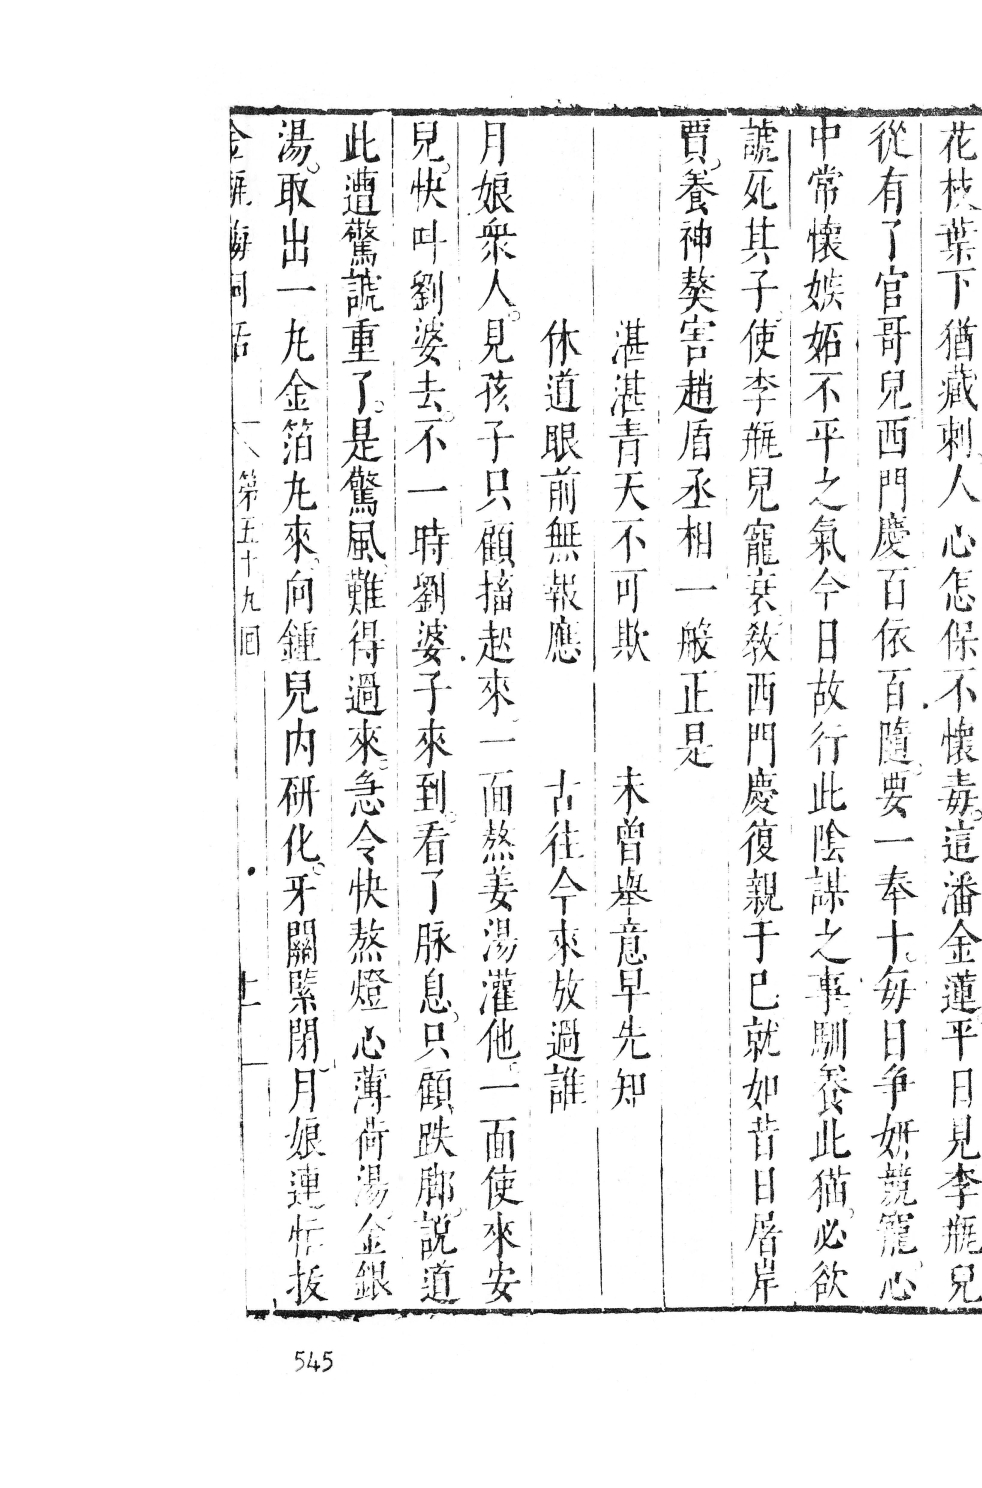 花枝葉下猶藏刺人心怎保不懷毒這潘金蓮平日見李瓶兒
從有了官哥兒西門慶百依百隨要一奉十每日爭妍競寵心
中常懷嫉妬不平之氣今日故行此陰謀之事馴養此猫必欲
諕死其子使李瓶兒寵衰教西門慶復親于巳就如昔日屠岸
賈養神獒害趙盾丞相一般正是
湛湛青天不可欺　未曾舉意早先知
休道眼前無報應　古往今來放過誰
月娘衆人見孩子只顧搐起來一面熬姜湯灌他一面使來安
兒快叫劉婆去不一時劉婆子來到看了脉息只顧跌脚說道
此遭驚諕重了是驚風難得過來急令快熬燈心薄荷湯金銀
湯取出一九金箔九來向鍾兒内研化牙關緊閉月娘連忙拔
金瓶梅詞話　第五十九回　十一
545